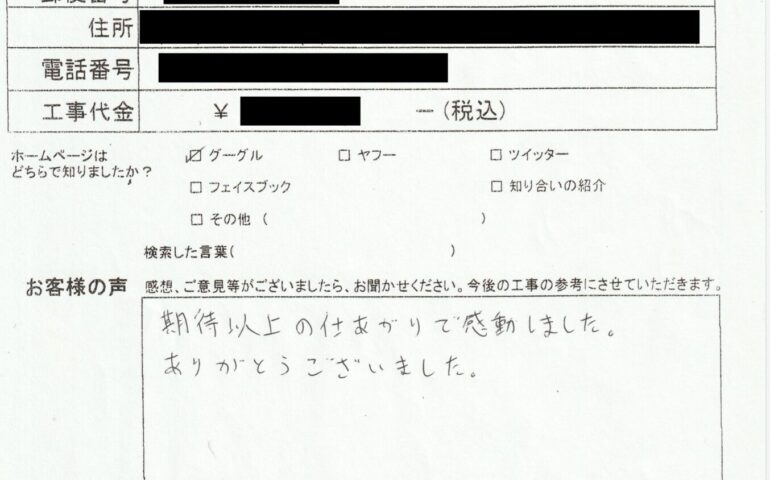 郵便番号
住所
電話番号
工事代金 ¥ ― (税込)
ホームページは
どちらで知りましたか？
☑ グーグル □ ヤフー □ ツイッター
□ フェイスブック □ 知り合いの紹介
□ その他 ( )
検索した言葉( )
お客様の声 感想、ご意見等がございましたら、お聞かせください。今後の工事の参考にさせていただきます。
期待以上の仕あがりで感動しました。
ありがとうございました。